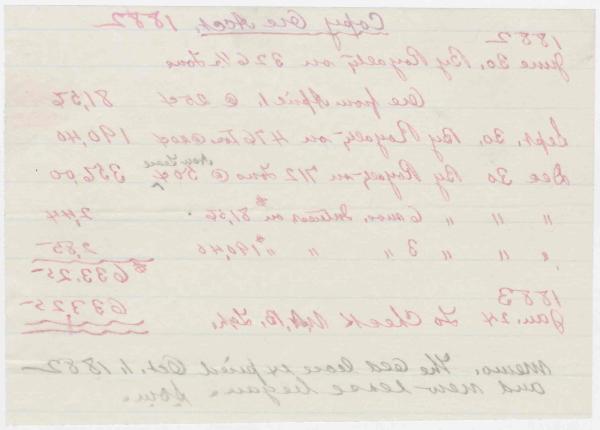 Copy Ore Acct. 1882
1882
June 30. By Royalty on 326 1/4 Tons
Ore from April 1, @ 25¢ 81,56
Sept. 30. By Royalty on 476 Ton @ 40¢ 190,40
New Lease
Dec 30 By Royalty on 712 Tons @ 50¢ 356,00
" " " 6 mos. Interest on $81,56 . 2,44
" " " 3 " " " $190,40 2,85
$633,25
1883
Jan. 24 To Check 633,25
Memo. The Old lease expired Oct. 1, 1882 -
and new lease began.